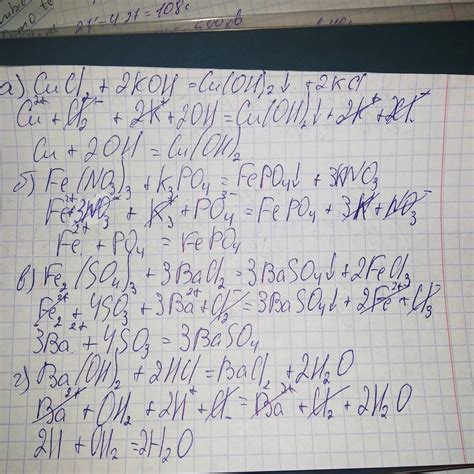 2Y=4.27=108г
а) CuCl₂ + 2KOH = Cu(OH)₂↓ + 2KCl
Cu²⁺ + Cl₂⁻ + 2K⁺ + 2OH = Cu(OH)₂↓ + 2K⁺ + 2Cl⁻
Cu + 2OH = Cu(OH)₂
б) Fe(NO₃)₃ + K₃PO₄ = FePO₄↓ + 3KNO₃
Fe²⁺ 3NO₃⁻ + K₃⁺ + PO₄³⁻ = FePO₄ + 3K⁺ + NO₃⁻
Fe²⁺ + PO₄ = FePO₄
в) Fe₂(SO₄)₃ + 3BaCl₂ = 3BaSO₄↓ + 2FeCl₃
Fe₂²⁺ + 4SO₃ + 3Ba²⁺ + Cl₂⁻ = 3BaSO₄↓ + 2Fe²⁺ + Cl₃⁻
3Ba²⁺ + 4SO₃ = 3BaSO₄
г) Ba(OH)₂ + 2HCl = BaCl₂ + 2H₂O
Ba²⁺ + OH₂ + 2H⁺ + Cl⁻ = Ba²⁺ + Cl₂⁻ + 2H₂O
2H + OH₂ = 2H₂O